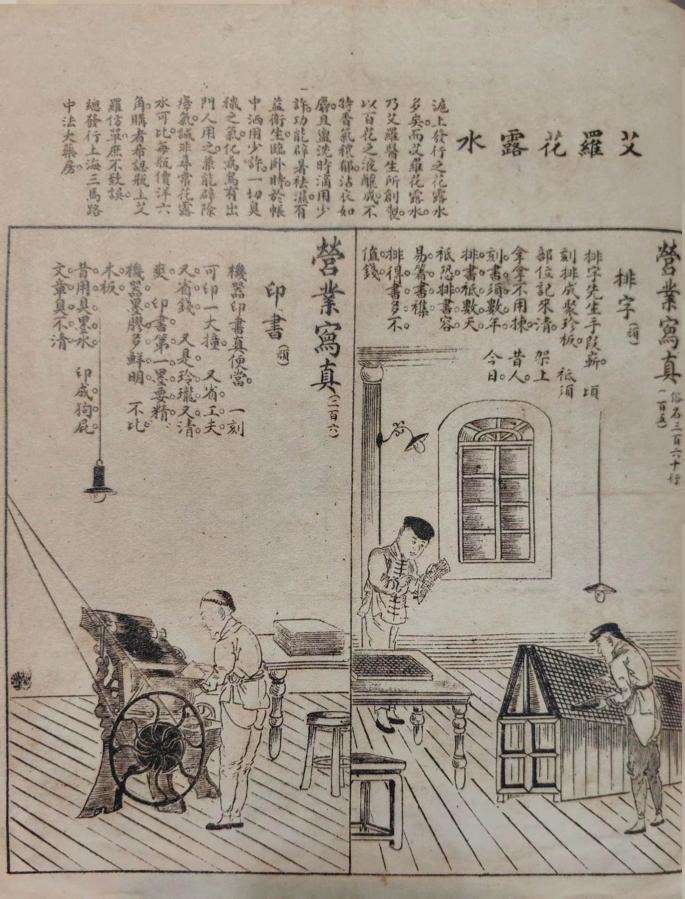 艾羅花露水
滬上發行之花露水
多矣。而艾羅花露水。
乃艾羅醫生所創製。
以百花之液釀成。不
特香氣穠郁。沾衣如
麝。且盥洗時滴用少
許。功能辟暑祛濕。有
益衛生。臨卧時於帳
中洒用少許。一切臭
穢之氣。化為烏有。出
門人用之。兼能辟除
氣。誠非尋常花露
水可比。每瓶價洋六
角。購者希認瓶上艾
羅仿單。庶不致誤
總發行上海三馬路
中法大藥房
營業寫真 俗名三百六十行
(一百五)
排字 (頌)
排字先生手段嶄。頃
刻排成聚珍板。祗須
部位記來清。架上
拿拿不用揀。昔人
刻書須數年。今日
排書祗數天。
祗恐排書容
易著書難。
排得書多不
值錢。
營業寫真 (二百六)
印書 (頌)
機器印書真便當。一刻
可印一大撞。又省工夫
又省錢。又是玲瓏又清
爽。印書第一墨要精。
機器墨膠多鮮明。不比
木板
昔用臭墨水。印成狗屁
文章臭不清。